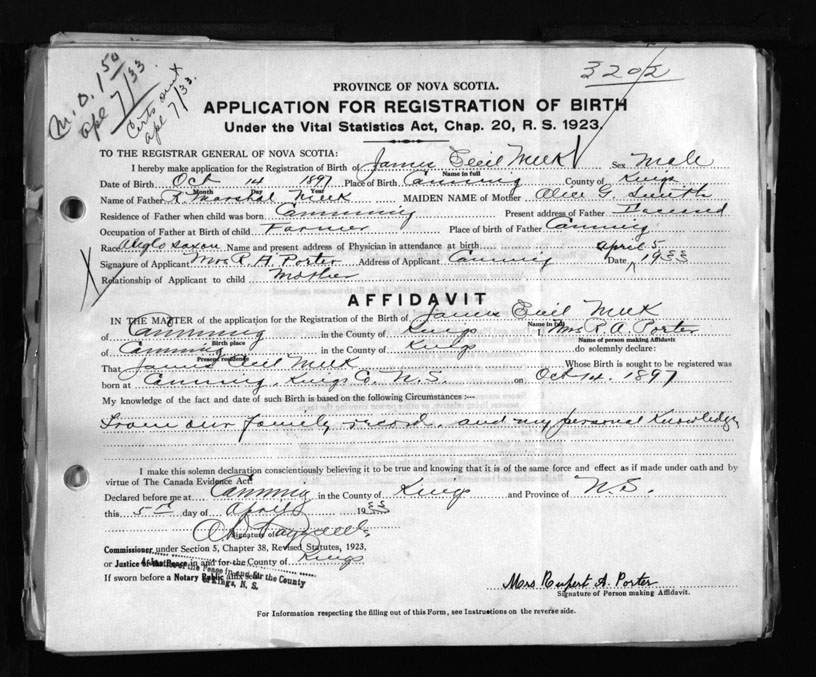 M. O. 1.50
Apl 7/33
Certs out
apl 7/33.
3202
PROVINCE OF NOVA SCOTIA.
APPLICATION FOR REGISTRATION OF BIRTH
Under the Vital Statistics Act, Chap. 20, R. S. 1923.
TO THE REGISTRAR GENERAL OF NOVA SCOTIA:
I hereby make application for the Registration of Birth of James Cecil Meek Sex Male
Name in full
Date of Birth Oct 14 1897 Place of Birth Canning County of Kings
Month Day Year
Name of Father R. Marshal Meek MAIDEN NAME of Mother Alice G.
Residence of Father when child was born Canning Present address of Father Deceased
Occupation of Father at Birth of child Farmer Place of birth of Father Canning
Race Anglo Saxon Name and present address of Physician in attendance at birth
Signature of Applicant Mrs R. A. Porter Address of Applicant Canning Date April 5 1933
Relationship of Applicant to child Mother
AFFIDAVIT
IN THE MATTER of the application for the Registration of the Birth of James Cecil Meek
Name in full
of Canning in the County of Kings I, Mrs R. A. Porter
Birth place Name of person making Affidavit
of Canning in the County of Kings do solemnly declare:
Present residence
That James Cecil Meek Whose Birth is sought to be registered was
born at Canning, Kings Co. N.S. on Oct 14. 1897
My knowledge of the fact and date of such Birth is based on the following Circumstances :—
From our family record and my personal Knowledge
I make this solemn declaration conscientiously believing it to be true and knowing that it is of the same force and effect as if made under oath and by
virtue of The Canada Evidence Act.
Declared before me at Canning in the County of Kings and Province of N.S.
this 5th day of April 1933
Signature of
Commissioner, under Section 5, Chapter 38, Revised Statutes, 1923,
or Justice of the Peace in and for the County of Kings
of the Peace in and for
If sworn before a Notary Public affix seal the County
Kings, N. S.
Mrs Rupert A. Porter
Signature of Person making Affidavit.
For Information respecting the filling out of this Form, see Instructions on the reverse side.